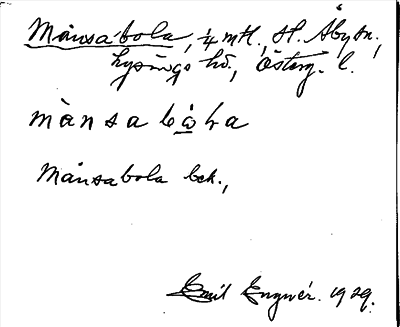 Månsabola, 1/4 mtl., St. Åby sn.,
Lysings hd., Österg. l.
mànsa bὼɫa
Månsabola bek.,
Emil Engnér. 1929.